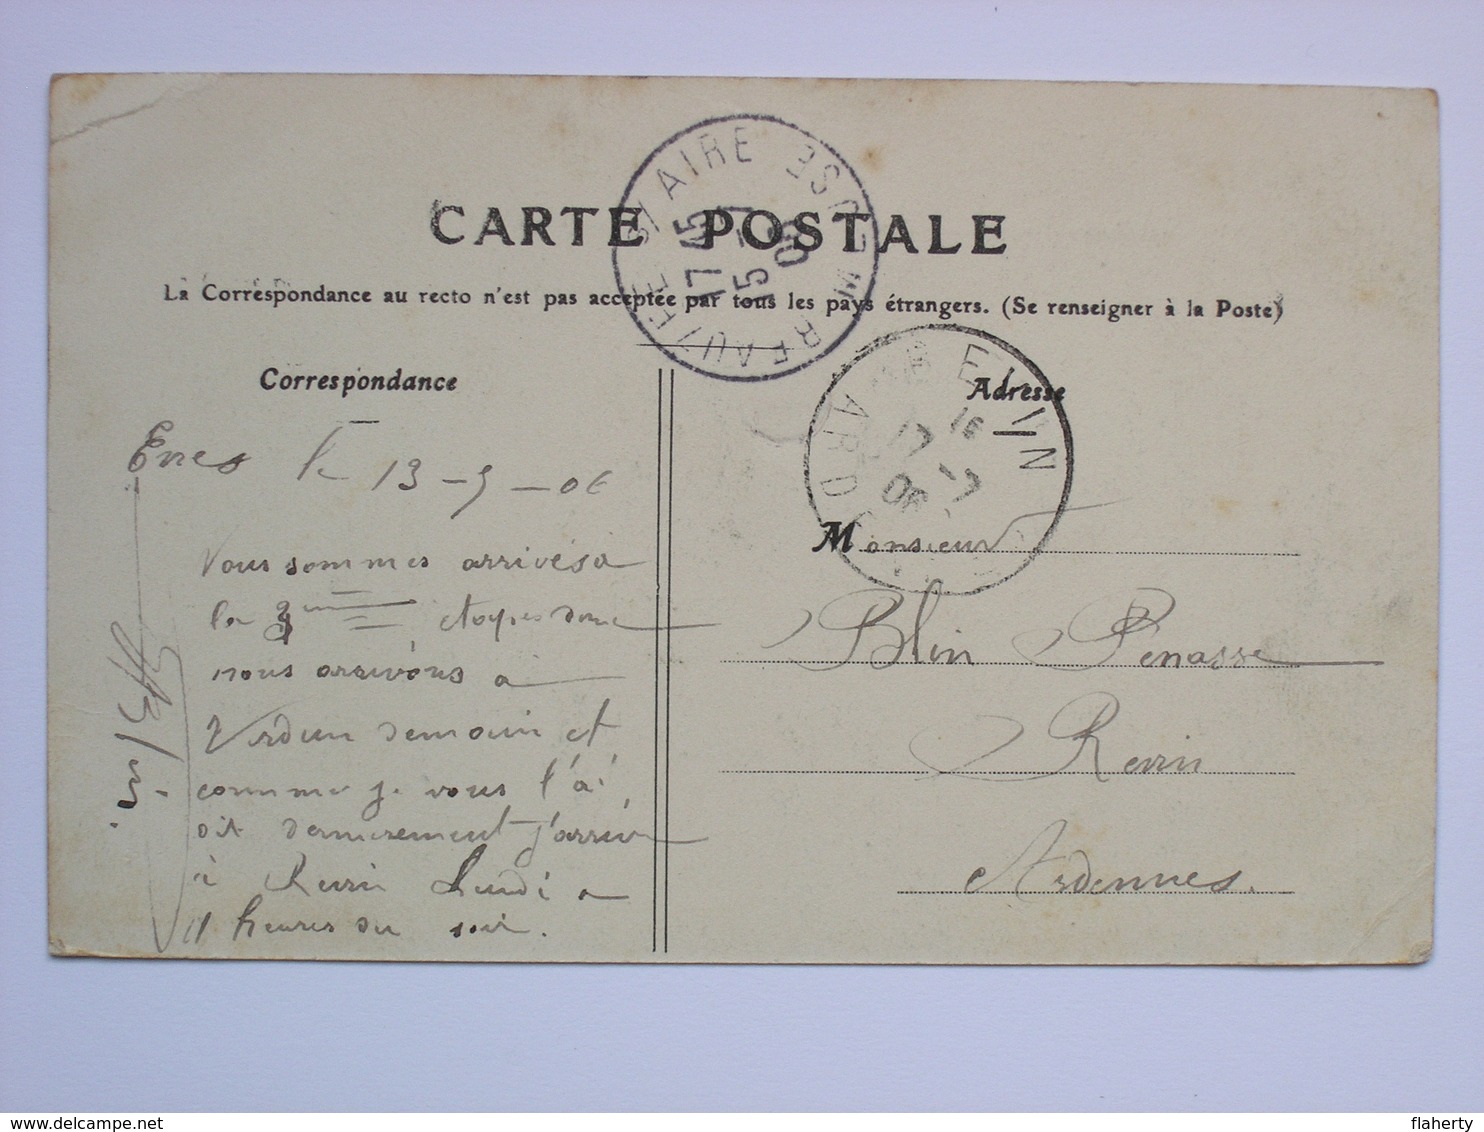 CARTE POSTALE
La Correspondance au recto n'est pas acceptée par tous les pays étrangers. (Se renseigner à la Poste)
Correspondance
Adresse
le 13-9-06
Nous sommes arrivés a
la 3ème étapes donc
nous arrivons a
Verdun demain et
comme je vous l'ai
dit dernierement j'arrive
à Revin Lundi a
11 heures du soir.
Blin
Monsieur
Blin Penasse
Revin
Ardennes.
AIRE
17 45
15
MEUSE
REVIN
ARD
16
17
06
flaherty